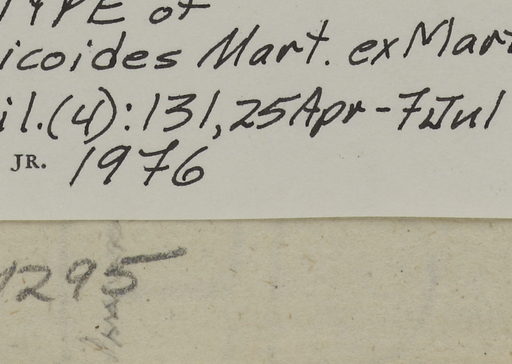 TYPE of
icoides Mart. ex Mart
il.(4):131, 25Apr-7Jul
JR. 1976
1295